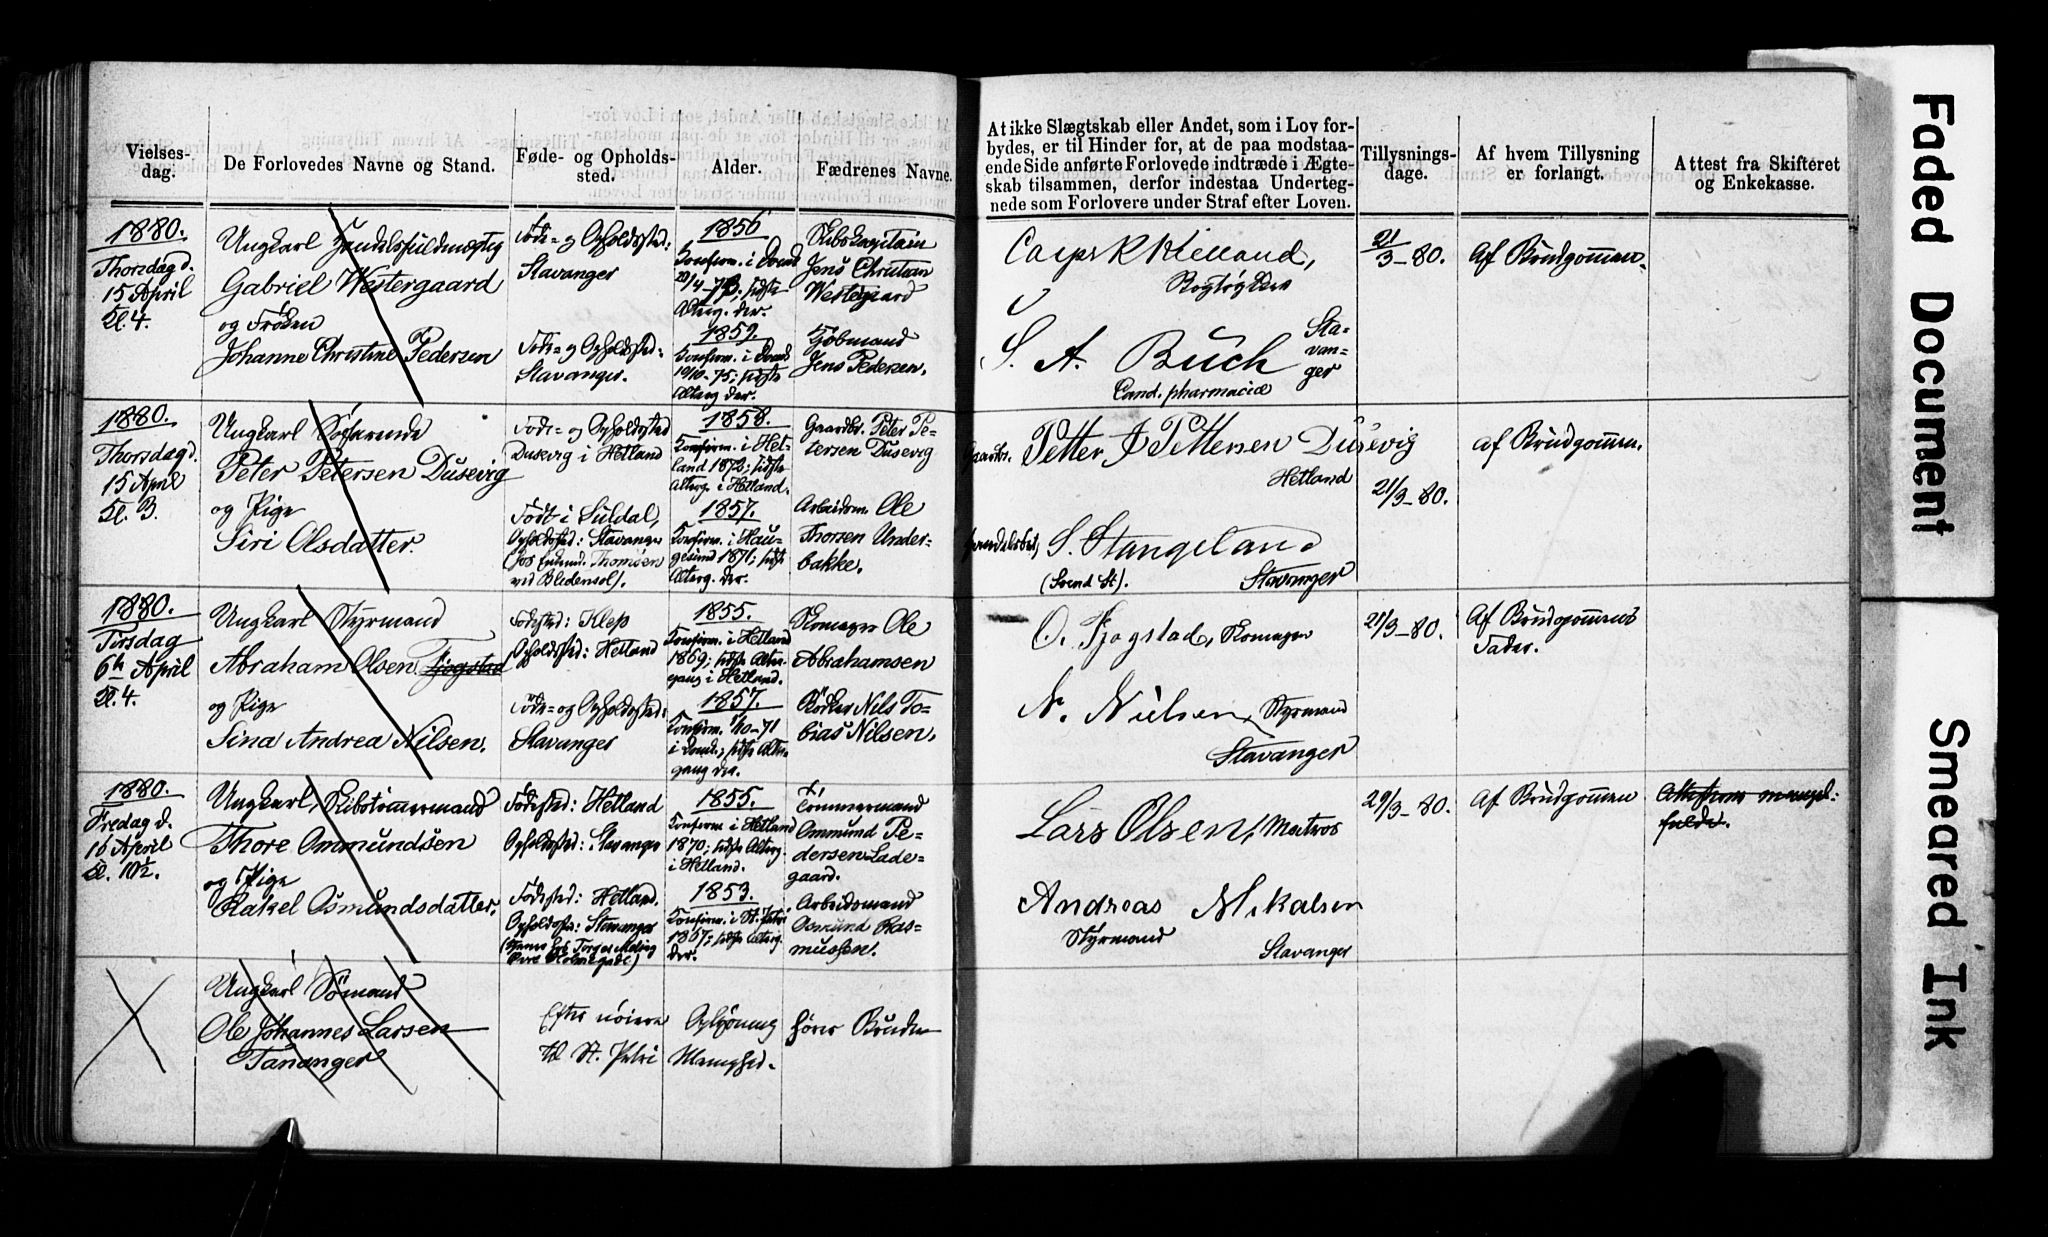 Vielses-
dag.
De Forlovedes Navne og Stand.
Føde- og Opholds-
sted.
Alder.
Fædrenes Navne.
At ikke Slægtskab eller Andet, som i Lov for-
bydes, er til Hinder for, at de paa modstaa-
ende Side anførte Forlovede indtræde i Ægte-
skab tilsammen, derfor indestaa Underteg-
nede som Forlovere under Straf efter Loven.
Tillysnings-
dage.
Af hvem Tillysning
er forlangt.
Attest fra Skifteret
og Enkekasse.
1880.
Thorsdag d.
15 April
Kl. 4.
Ungkarl Handelsfuldmægtig
Gabriel Westergaard
og Frøken
Johanne Christine Pedersen
Føde- og Opholdssted:
Stavanger
Føde- og Opholdssted:
Stavanger.
1856
Konfirm. i Domk
20/4-73; sidste
Alterg. der.
1859.
Konfirm. i Domk
10/10-75; sidste
Alterg. der.
Skibskapitain
Jens Christian
Westergaard
Kjøbmand
Jens Pedersen.
Casper K Kielland,
S. A. Buch
Sta-
van-
ger
Cand. pharmaciæ
21/3-80.
Af Brudgommen.
1880.
Thorsdag d.
15 April
Kl. 3.
Ungkarl Søfarende
Peter Petersen Dusevig
og Pige
Siri Olsdatter.
Føde- og Opholdssted
Dusevig i Hetland
Født i Suldal,
Opholdssted: Stavanger
(hos Thomsen
ved Bledensøl).
1858.
Konfirm. i Het-
land 1873; sidste
Alterg. i Hetland.
1857.
Konfirm. i Hau-
gesund 1871; sidste
Alterg. der.
Gaardbr. Peter Pe-
tersen Dusevig
Arbeidsm. Ole
Thorsen Under-
bakke.
Gaardbr. Petter J Pettersen Dusevig
Hetland
S. Stangeland
(Svend St). Stavanger
21/3-80.
af Brudgommen.
1880.
Tirsdag
6te April
Kl. 4.
Ungkarl Styrmand
Abraham Olsen Fjogstad
og Pige
Sina Andrea Nilsen.
Fødested: Klep
Opholdssted: Hetland
Føde- og Opholdssted:
Stavanger
1855.
Konfirm. i Hetland
1869; sidste Alter-
gang i Hetland.
1857.
Konfirm. 1/10-71
i Domk.; sidste Alter-
gang der.
Skomager Ole
Abrahamsen
Bødker Nils To-
bias Nilsen.
O. Fjogstad, Skomager
N. Nielsen, Styrmand
Stavanger
21/3-80.
Af Brudgommens
Fader.
1880.
Fredag d.
16 April
Kl. 10½.
Ungkarl, Skibstømmermand
Thore Ommundsen
og Pige
Rakel Osmundsdatter.
Fødested: Hetland
Opholdssted: Stavanger
Fødested: Hetland.
Opholdssted: Stavanger
1855.
Konfirm. i Hetland
1870; sidste Alterg.
i Hetland.
1853.
Konfirm. i St. Petri
1867; sidste Alterg.
der.
Tømmermand
Ommund Pe-
dersen Lade-
gaard.
Arbeidsmand
Osmund Ras-
mussen.
Lars Olsen, Matros
Andreas Mikalsen
Styrmand
Stavanger
29/3-80.
Af Brudgommen
Ungkarl Sømand
Ole Johannes Larsen
Tananger
Efter nøiere Oplysning hører Bruden
til St. Petri Menighed.
Faded Document
Smeared Ink